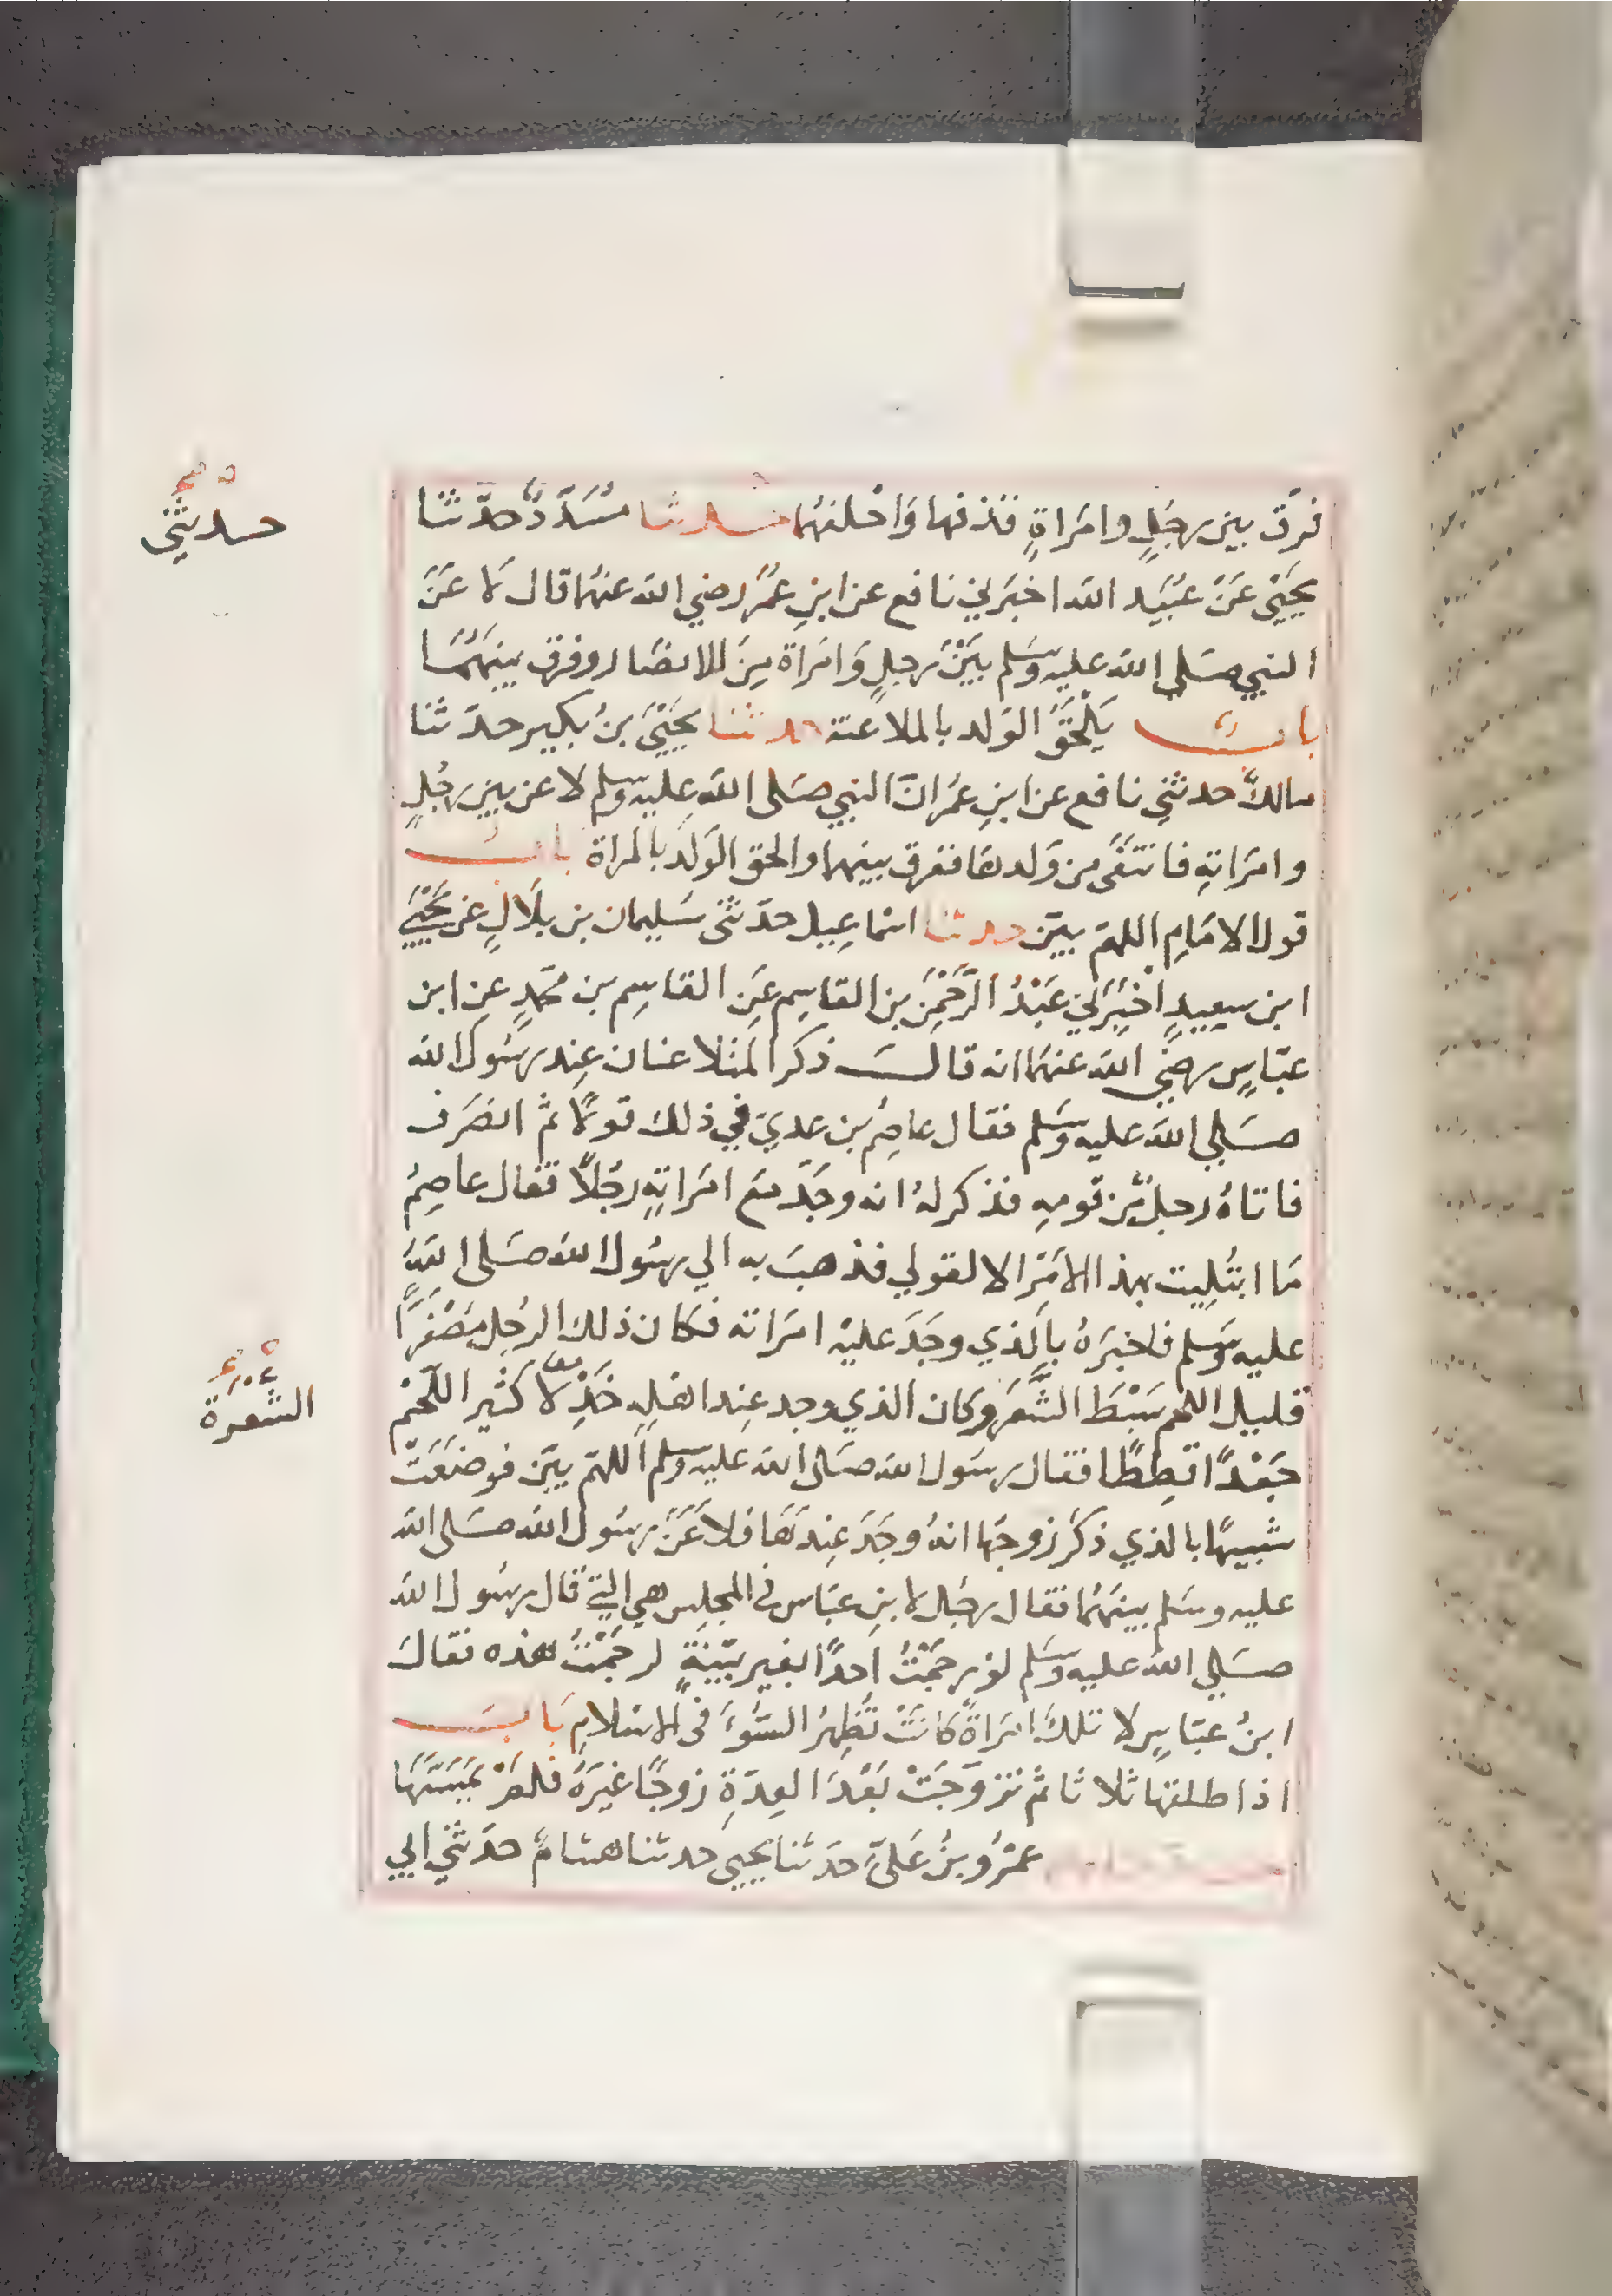 فرّق بين رجُلٍ وامرَاةٍ قذفها وَاحْلفهُما حدثنا مُسَدَّدٌ حدّثنا
يحيَى عَن عُبَيد الله اخبَرني نافع عن ابنِ عمرَ رضي الله عنهُما قال لاعَنَ
النبي صَلى الله عليه وسَلم بيْنَ رجلٍ وَامرَاة مِنَ الانصَار وفرق بينهُمَا
باب يَلْحَقُ الوَلد بالملاعنة حدثنا يحيَى بنُ بكير حدّثنا
مالكٌ حدثني نافع عن ابنِ عمُر انّ النبي صَلى الله عليه وسلم لاعن بين رجُلٍ
وامرَاتهِ فانتفَى من وَلدهَا ففرق بينهما والحق الوَلد بالمراة باب
قول الامَامِ اللهمّ بيّن حدثنا اسْمَاعِيل حدّثنى سَليمان بن بلَالٍ عن يحيَى
ابن سعِيدٍ اخْبَرَني عَبْدُ الرّحْمَن بن القاسِم عَنِ القاسِم بن محمدٍ عن ابن
عبّاسٍ رضيَ الله عنهُما انه قال ذكر المتلاعنان عِند رسُول الله
صَلي الله عليه وسَلم فقال عاصِمُ بن عديّ في ذلك قولًا ثم انصَرَف
فاتاهُ رجلٌ مّن قومهِ فذكر لهُ انه وجَدَ مَع امرَاتهِ رجُلًا فقال عاصِمُ
مَا ابتُلِيت بهذا الامْرِ الا لقولي فذهبَ به الي رسُول الله صَلى اللهُ
عليه وسَلم فاخبرَهُ بالذي وجَدَ عليْهِ امرَاته فكان ذلك الرجُل مصْفَرًّا
قليل اللحم سَبْطَ الشَّعَرِ وكان الذي وجد عِند اهْلِه خَدْلًا كثير اللّحْم
جَعْدًا قطِطًا فقال رسُول الله صَلى الله عليه وسلم اللهمّ بيّن فوضعَتْ
شبيهًا بالذي ذكر زوجهَا انهُ وجَدَ عِندهَا فلاعَنَ رسُول الله صَلى الله
عليه وسَلم بينهُما فقال رجُل لابنِ عبَاس في المجلِس هي التي قال رسُول الله
صَلي الله عليه وسَلم لو رجَمْتُ احدًا بغير بيّنةٍ لرجَمْتُ هذه فقال
ابنُ عبّاسٍ لا تلكَ امرَاةٌ كانَتْ تُظهِرُ السُّوءَ فى الاسْلامِ بَاب
اذا طلقها ثلاثا ثم تزوّجَتْ بَعْدَ العِدّةِ زوجًا غيرَهُ فلمْ يمَسَّهَا
عمْرُو بنُ عَليّ حدّثنا يحيى حدثنا هشامٌ حدّثني ابي
حدثني
الشعرة